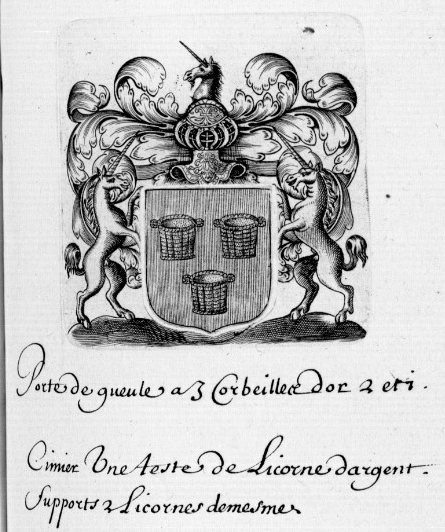 Porte de gueule a 3 Corbeilles dor 2 et 1.
Cimier Une teste de Licorne dargent.
Supports 2 Licornes demesme